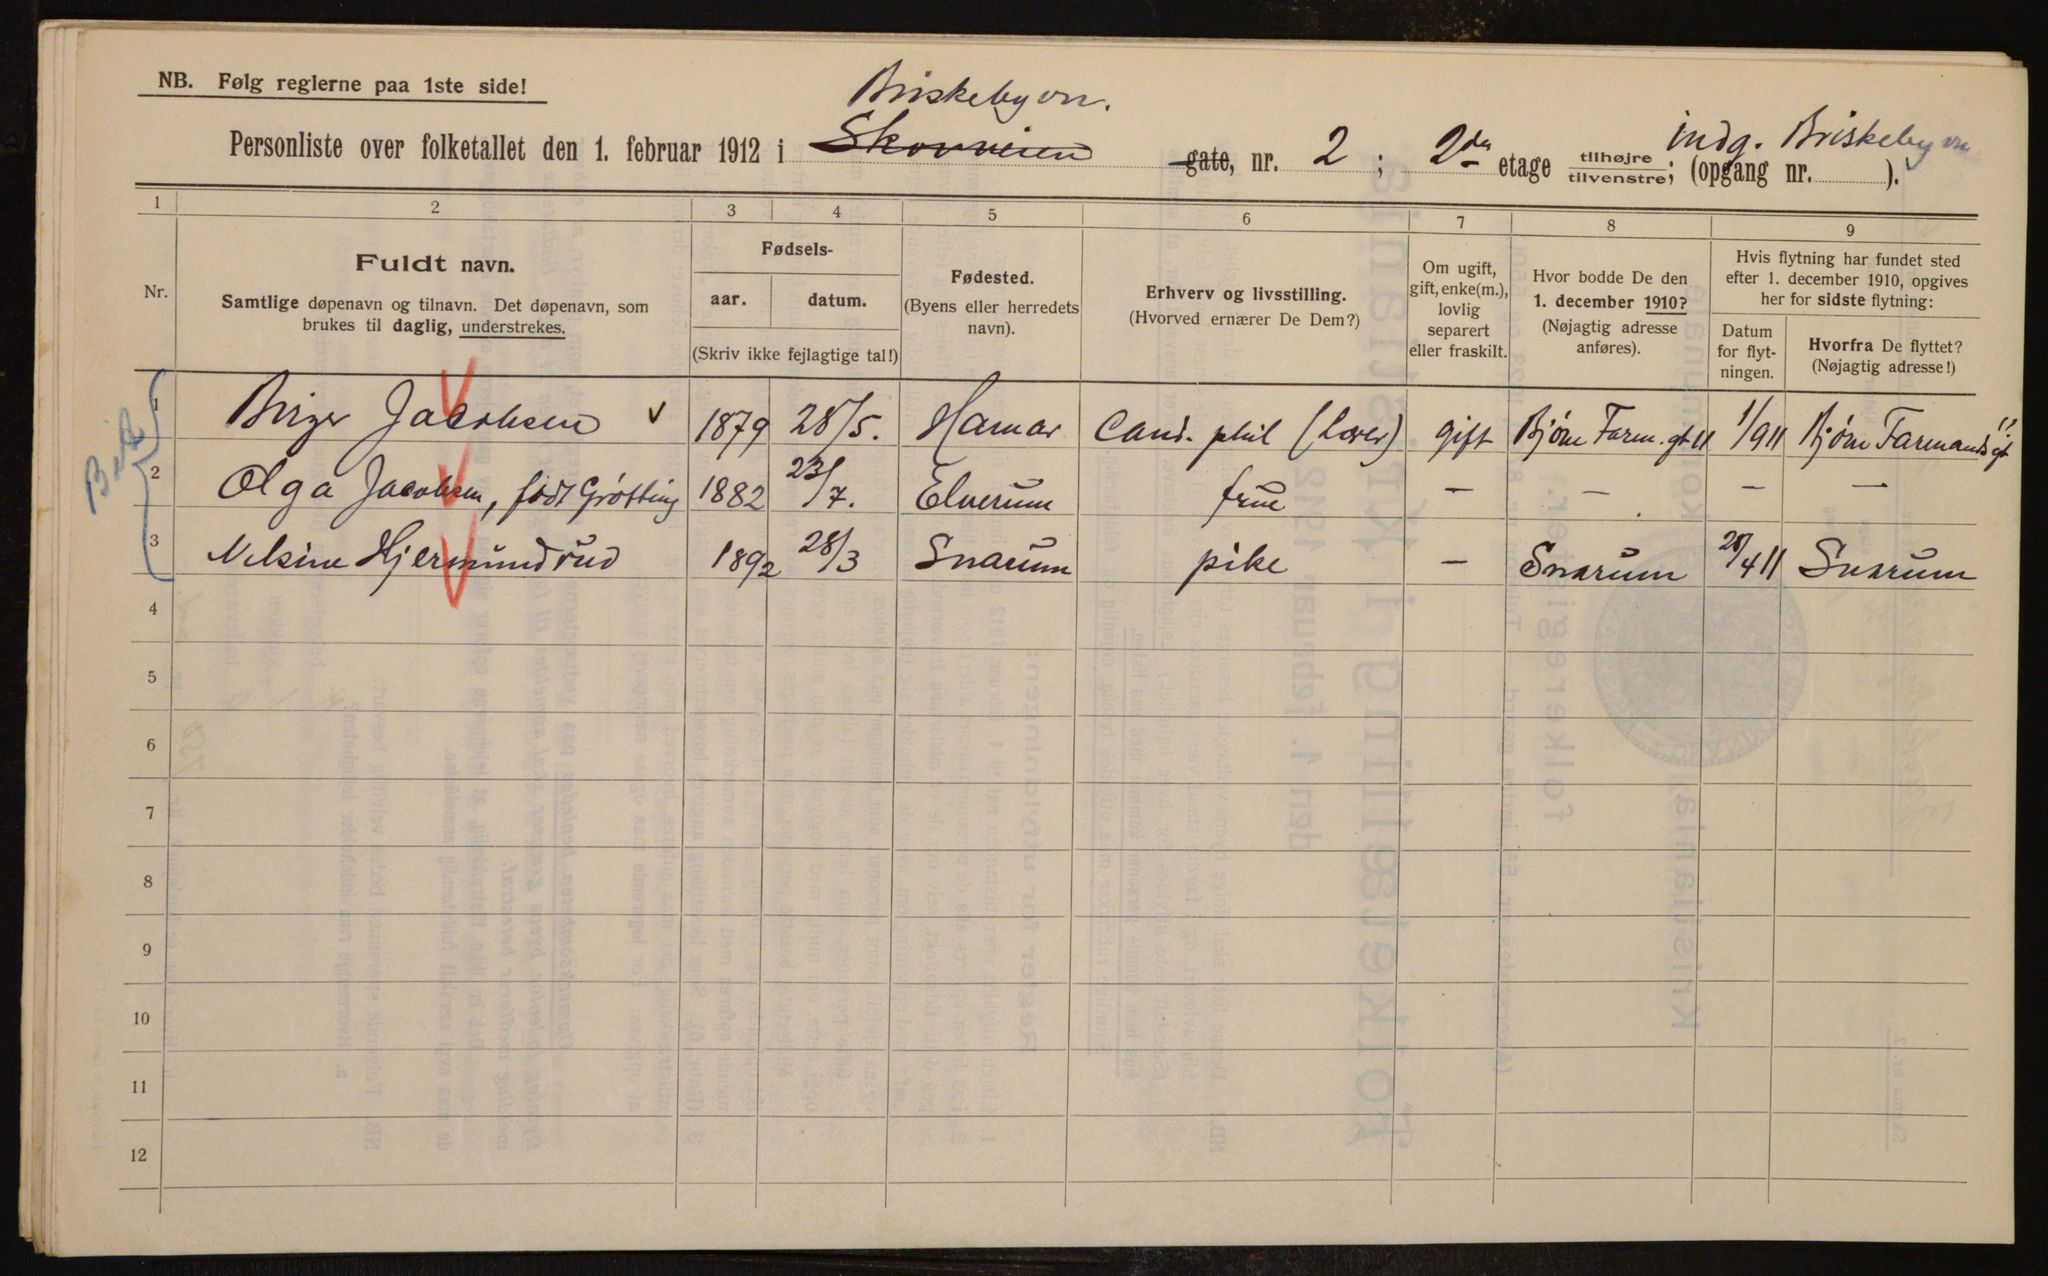 NB. Følg reglerne paa 1ste side!
Briskebyvn.
Personliste over folketallet den 1. februar 1912 i Skovveien gate, nr. 2; 2den etage tilhøjre tilvenstre; (opgang nr. ).
indg. Briskebyvn
1 2 3 4 5 6 7 8 9
Nr.
Fuldt navn.
Samtlige døpenavn og tilnavn. Det døpenavn, som
brukes til daglig, understrekes.
Fødsels-
aar. datum.
(Skriv ikke fejlagtige tal!)
Fødested.
(Byens eller herredets
navn).
Erhverv og livsstilling.
(Hvorved ernærer De Dem?)
Om ugift,
gift, enke(m.),
lovlig
separert
eller fraskilt.
Hvor bodde De den
1. december 1910?
(Nøjagtig adresse
anføres).
Hvis flytning har fundet sted
efter 1. december 1910, opgives
her for sidste flytning:
Datum
for flyt-
ningen.
Hvorfra De flyttet?
(Nøjagtig adresse!)
1 Birger Jacobsen v 1879 28/5. Hamar Cand. phil (Lærer) gift Bjørn Farm. gt 11 1/9 11 Bjørn Farmands gt 11
2 Olga Jacobsen, født Grøtting 1882 23/7. Elverum frue — — — —
3 Nilsine Hjermundrud 1892 28/3 Snarum pike — Snarum 28/4 11 Snarum
4
5
6
7
8
9
10
11
12